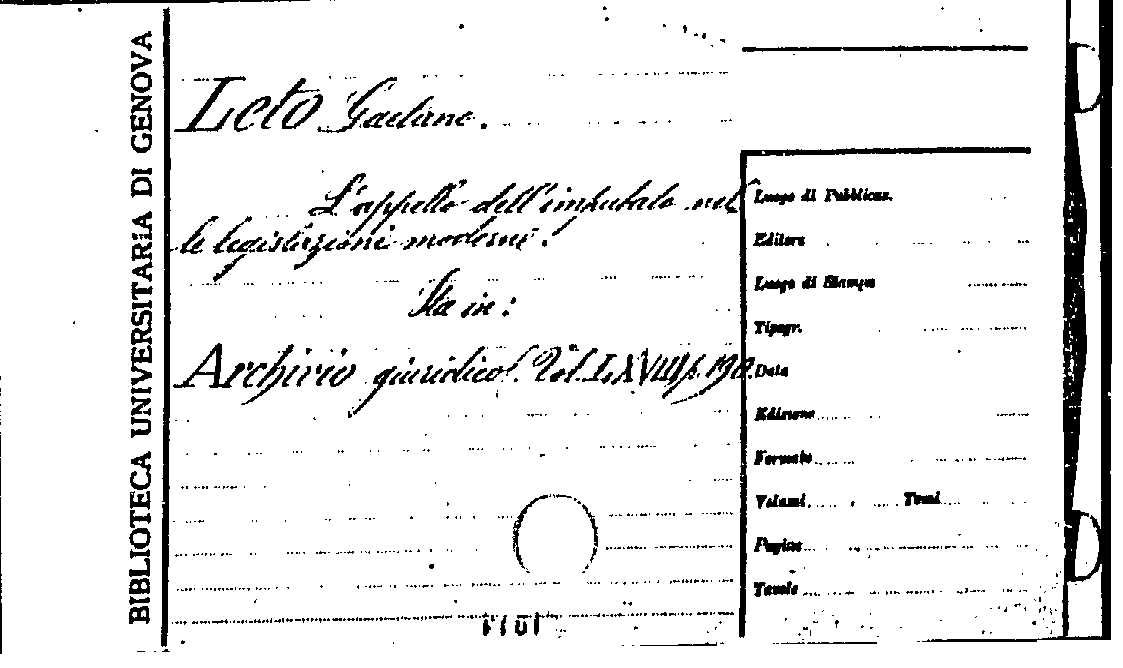 BIBLIOTECA UNIVERSITARIA DI GENOVA
Leto Gaetano.
L'appello dell'imputato nel
le legislazioni moderne.
Sta in:
Archivio giuridico. Vol. LXVIII
Luogo di Pubblicaz.
Editore
Luogo di Stampa
Tipogr.
Data
Edizione
Formato
Volumi Tomi
Pagine
Tavole